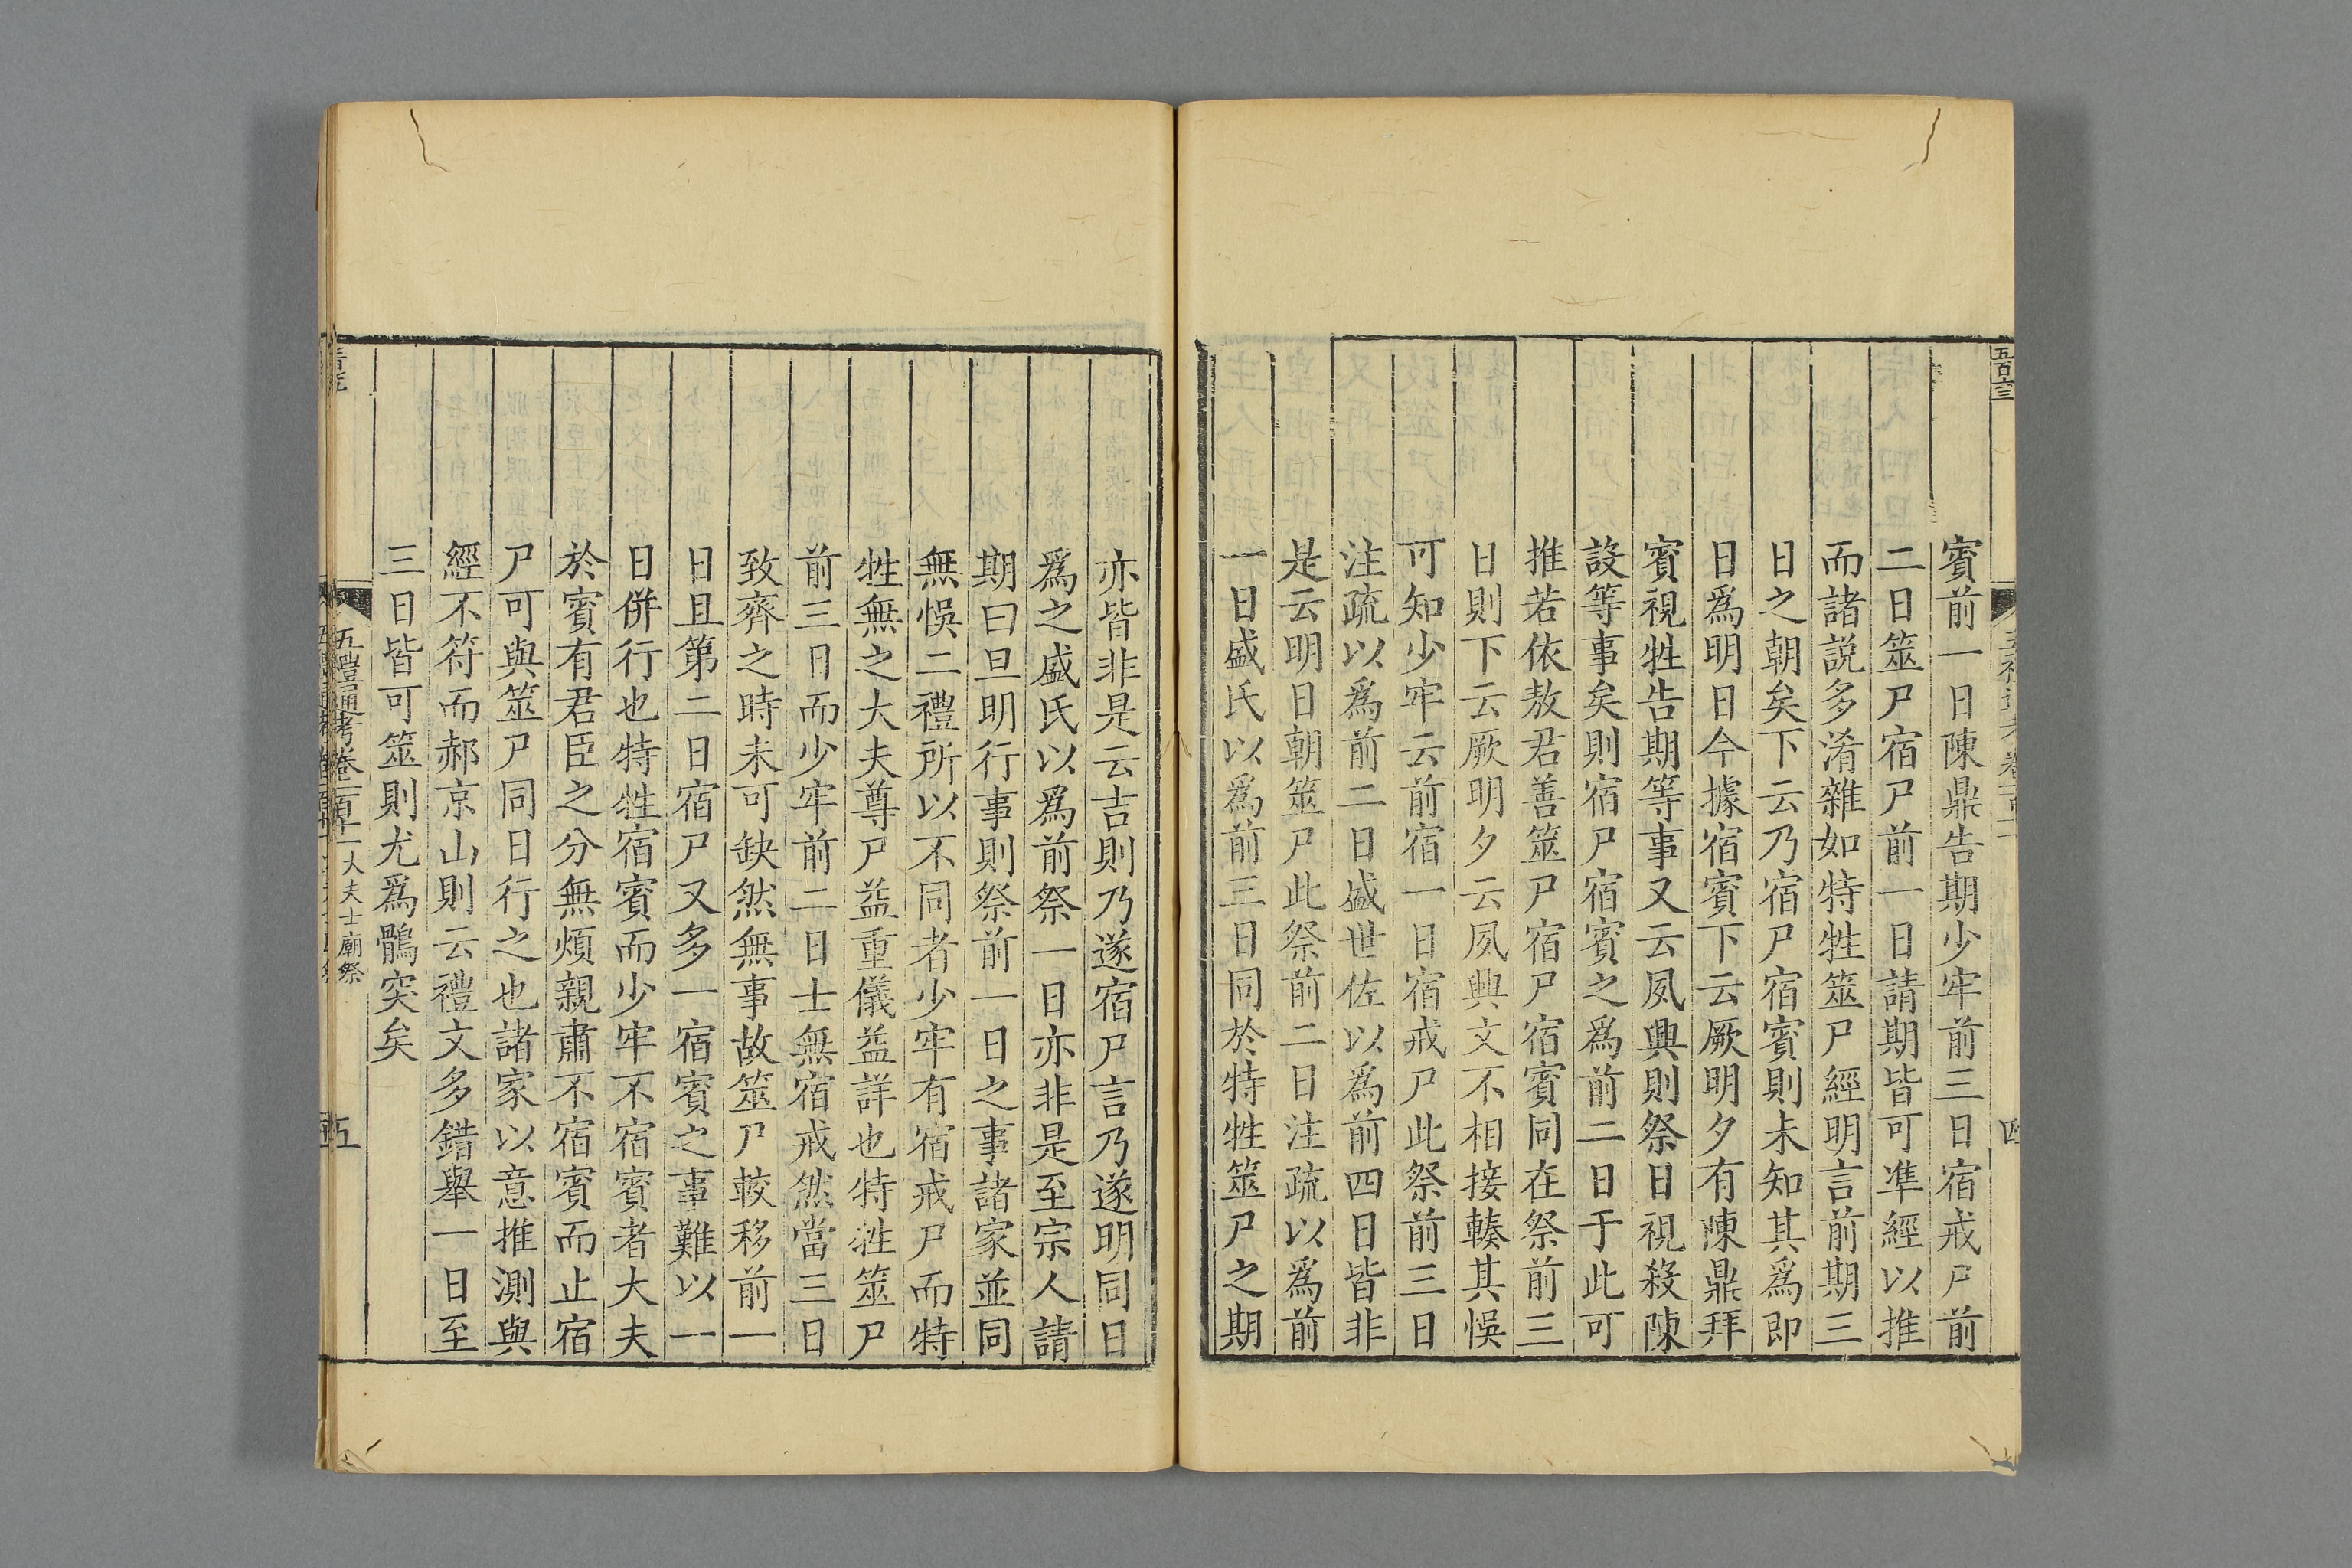 賓前一日陳鼎告期少牢前三日宿戒尸前
二日筮尸宿尸前一日請期皆可凖經以推
而諸説多淆雜如特牲筮尸經明言前期三
日之朝矣下云乃宿尸宿賓則未知其爲即
日爲明日今據宿賓下云厥明夕有陳鼎拜
賓視牲告期等事又云夙興則祭日視殺陳
設等事矣則宿尸宿賓之爲前二日于此可
推若依敖君善筮尸宿尸宿賓同在祭前三
日則下云厥明夕云夙興文不相接轃其悞
可知少牢云前宿一日宿戒尸此祭前三日
注疏以爲前二日盛世佐以爲前四日皆非
是云明日朝筮尸此祭前二日注疏以爲前
一日盛氏以爲前三日同於特牲筮尸之期
亦皆非是云吉則乃遂宿尸言乃遂明同日
爲之盛氏以爲前祭一日亦非是至宗人請
期曰旦明行事則祭前一日之事諸家並同
無悞二禮所以不同者少牢有宿戒尸而特
牲無之大夫尊尸益重儀益詳也特牲筮尸
前三日而少牢前二日士無宿戒然當三日
致齊之時未可缺然無事故筮尸較移前一
日且第二日宿尸又多一宿賓之事難以一
日併行也特牲宿賓而少牢不宿賓者大夫
於賓有君臣之分無煩親肅不宿賓而止宿
尸可與筮尸同日行之也諸家以意推測與
經不符而郝京山則云禮文多錯舉一日至
三日皆可筮則尤爲鶻突矣
五禮通考卷一百十一 大夫士廟祭
五